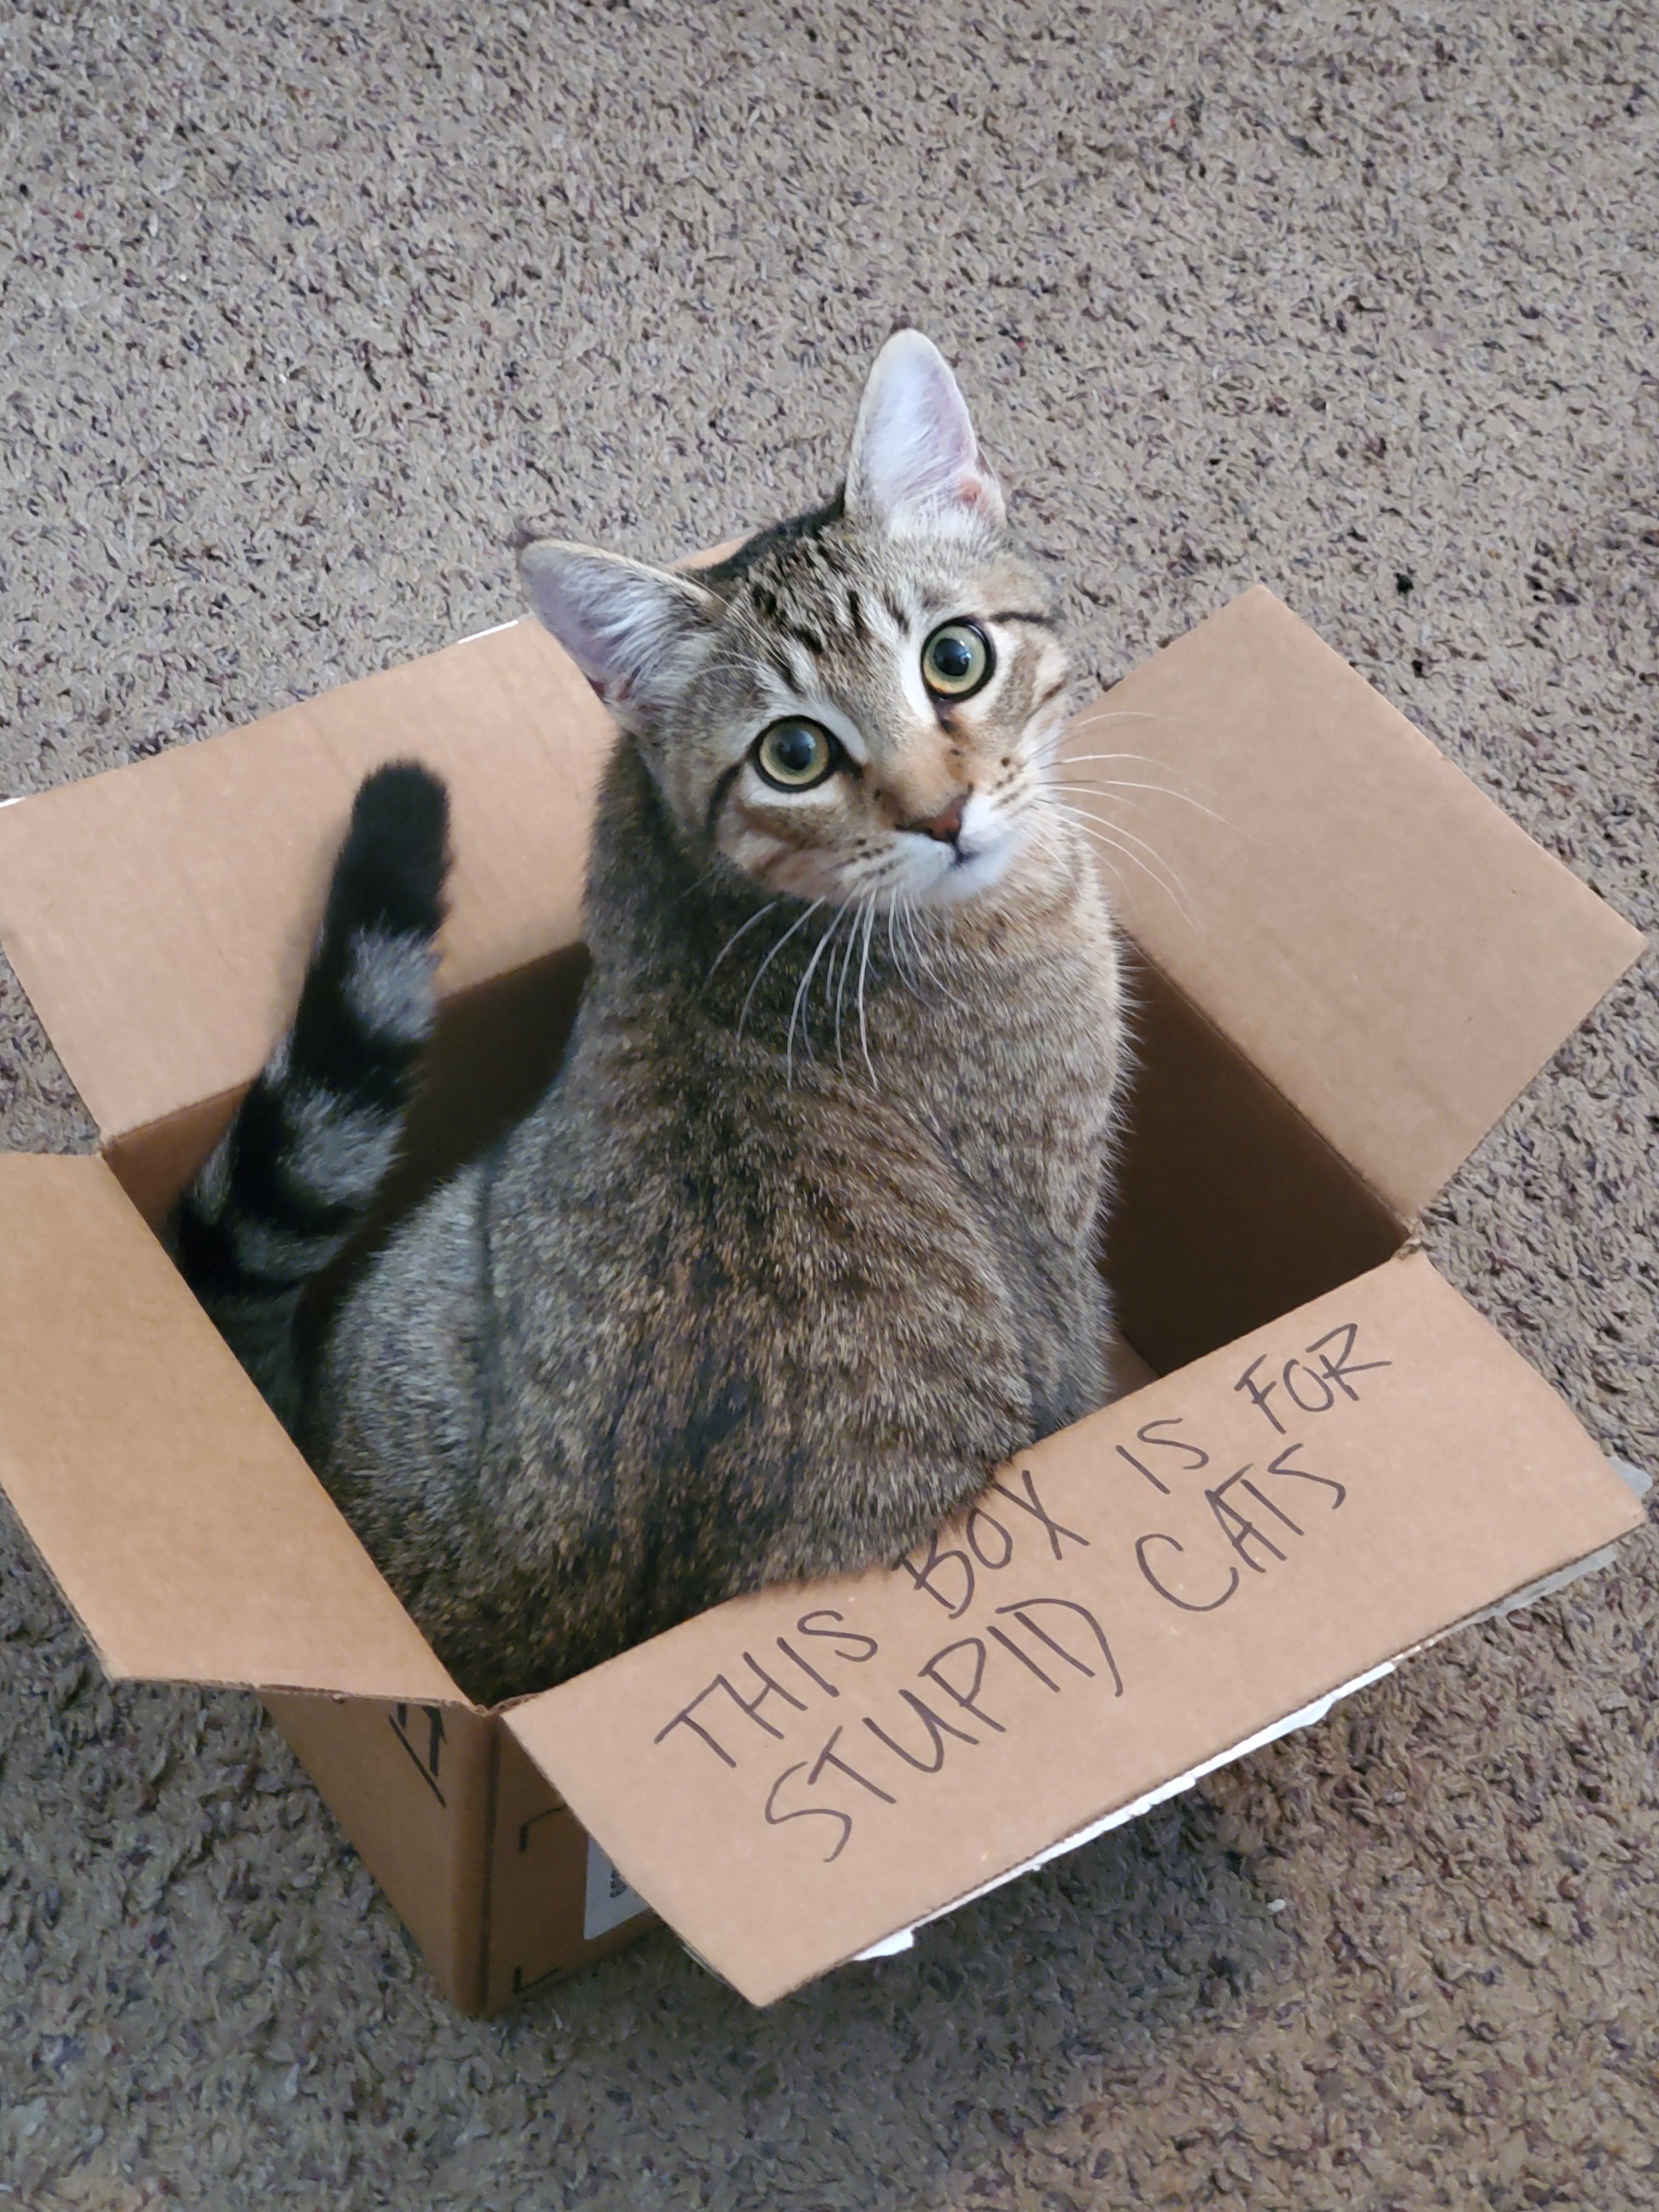 THIS BOX IS FOR
STUPID CATS